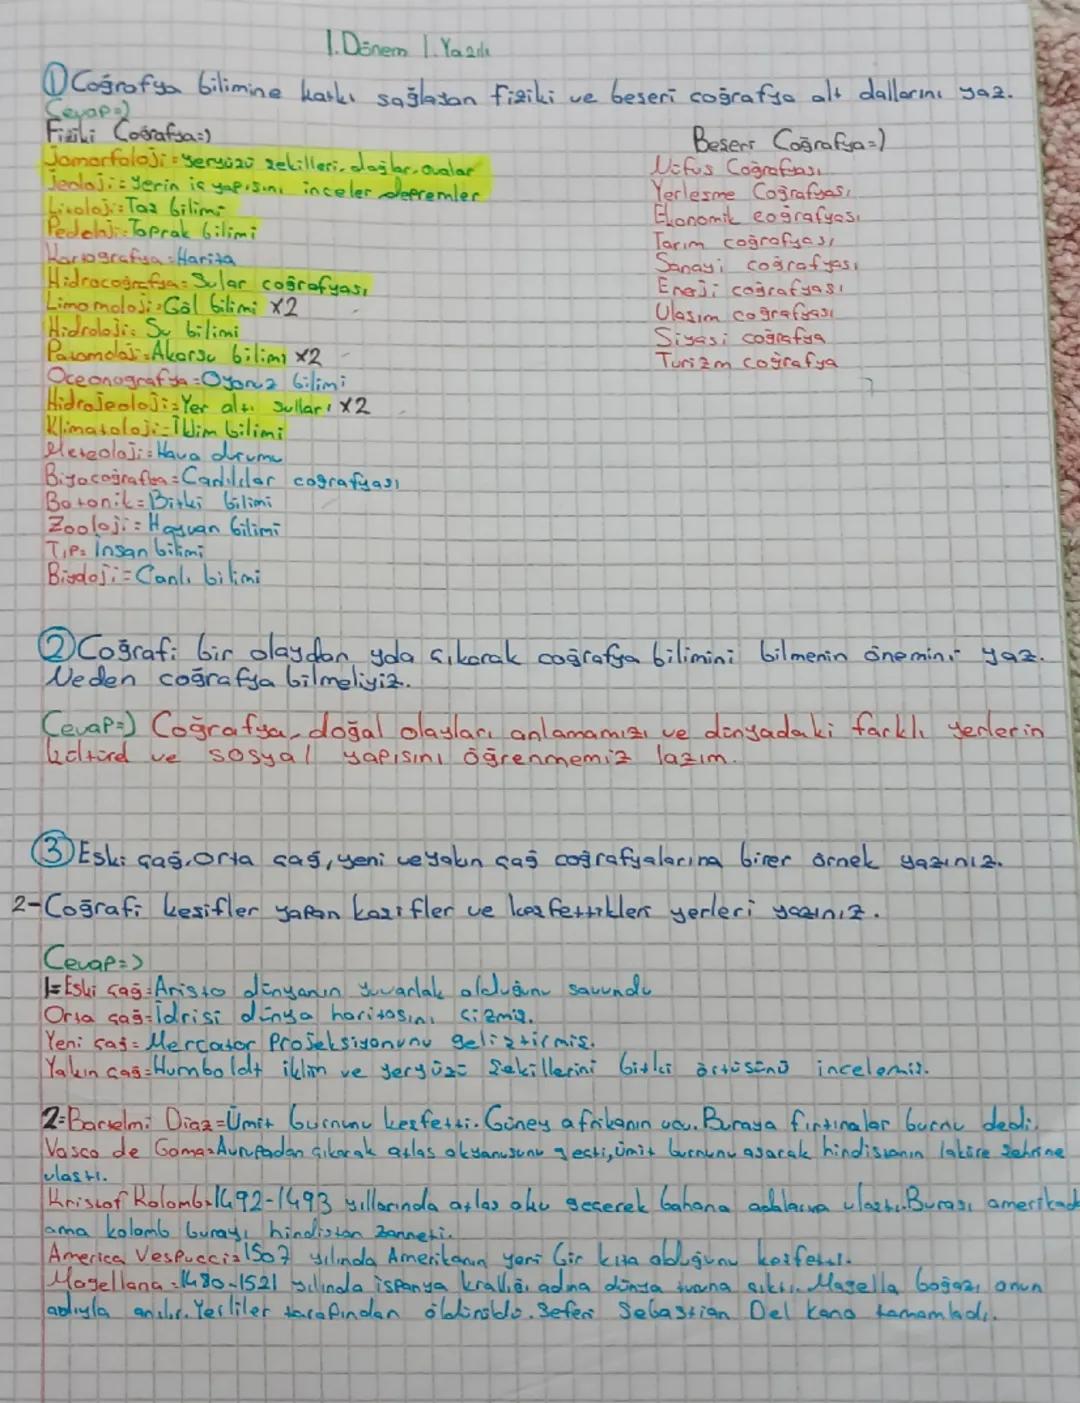 1. Dönem 1. Yazılı
① Coğrafya bilimine katkı sağlayan fiziki ve beşeri coğrafya alt dallarını yaz.
Cevap=)
Fiziki Coğrafya=)
Jomorfoloji=yeryüzü şekilleri, dağlar, ovalar
Jeoloji= yerin iç yapısını inceler depremler
Litoloji=Taş bilimi
Pedeloji=Toprak bilimi
Kartografya=Harita
Hidrocoğrafya=Sular coğrafyası
Limomoloji=Göl bilimi x2
Hidroloji= Su bilimi
Potomoloji=Akarsu bilimi x2
Oceonografya=Okyanuz bilimi
Hidrojeoloji=Yer altı Suları x2
Klimatoloji=İklim bilimi
Meteoloji=Hava durumu
Biyocoğrafya=Canlılar coğrafyası
Botonik=Bitki bilimi
Zooloji= Hayvan bilimi
TıP= İnsan bilimi
Biyoloji=Canlı bilimi
Beşeri Coğrafya=)
Nüfus Coğrafyası
Yerleşme Coğrafyası
Ekonomik coğrafyası
Tarım coğrafyası
Sanayi coğrafyası
Enerji coğrafyası
Ulaşım coğrafyası
Siyasi coğrafya
Turizm coğrafya
② Coğrafi bir olaydan yola çıkarak coğrafya bilimini bilmenin önemini yaz.
Neden coğrafya bilmeliyiz.
Cevap=) Coğrafya, doğal olayları anlamamızı ve dünyadaki farklı yerlerin
kültürel ve sosyal yapısını öğrenmemiz lazım.
③ Eski çağ, Orta çağ, yeni ve yakın çağ coğrafyalarına birer örnek yazınız.
2-Coğrafi keşifler yapan kaşifler ve keşfettikleri yerleri yazınız.
Cevap=>
1=Eski çağ=Aristo dünyanın yuvarlak olduğunu savundu
Orta çağ=İdrisi dünya haritasını çizmiş.
Yeni çağ= Mercator Projeksiyonunu geliştirmiş.
Yakın çağ=Humboldt iklim ve yeryüzü Şekillerini bitki örtüsünü incelemiş.
2=Bartelmi Diaz=Ümit burnunu keşfetti. Güney afrikanın ucu. Buraya fırtınalar burnu dedi.
Vasco de Goma=Avrupadan çıkarak atlas okyanusunu geçti, ümit burnunu aşarak hindistanın laküre şehrine
ulaştı.
Kristof Kolomb=1492-1493 yıllarında atlas oku geçerek bahama adalarına ulaştı. Burası amerikadı
ama kolomb burayı hindistan zanneti.
America Vespucci=1507 yılında Amerikanın yeni bir kıta olduğunu keşfetti.
Magellana=1480-1521 yılında ispanya krallığı adına dünya turuna çıktı. Magella boğazı onun
adıyla anılır. Yerliler tarafından öldürüldü. Seferi Sebastian Del Kano tamamladı.